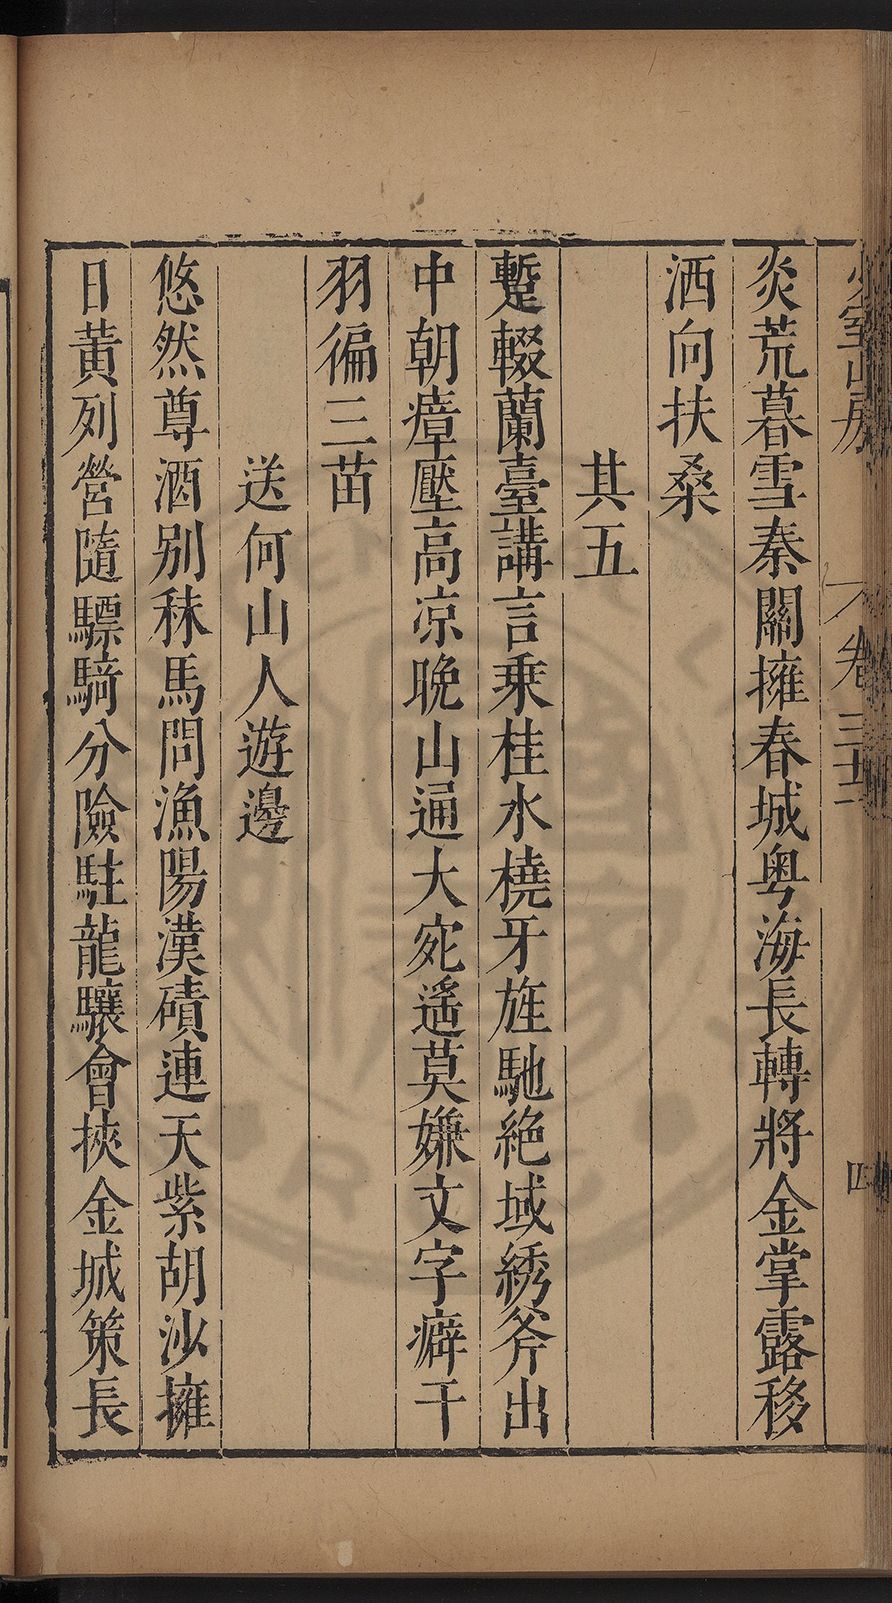 少室山房
卷三十二
四
炎荒暮雪秦關擁春城粤海長轉將金掌露移
洒向扶桑
其五
蹔輟蘭臺講言乗桂水橈牙旌馳絶域綉斧出
中朝瘴壓高凉晚山通大宛遥莫嫌文字癖干
羽徧三苗
送何山人遊邊
悠然尊酒别秣馬問漁陽漢磧連天紫胡沙擁
日黄列營隨驃騎分險駐龍驤會挾金城策長